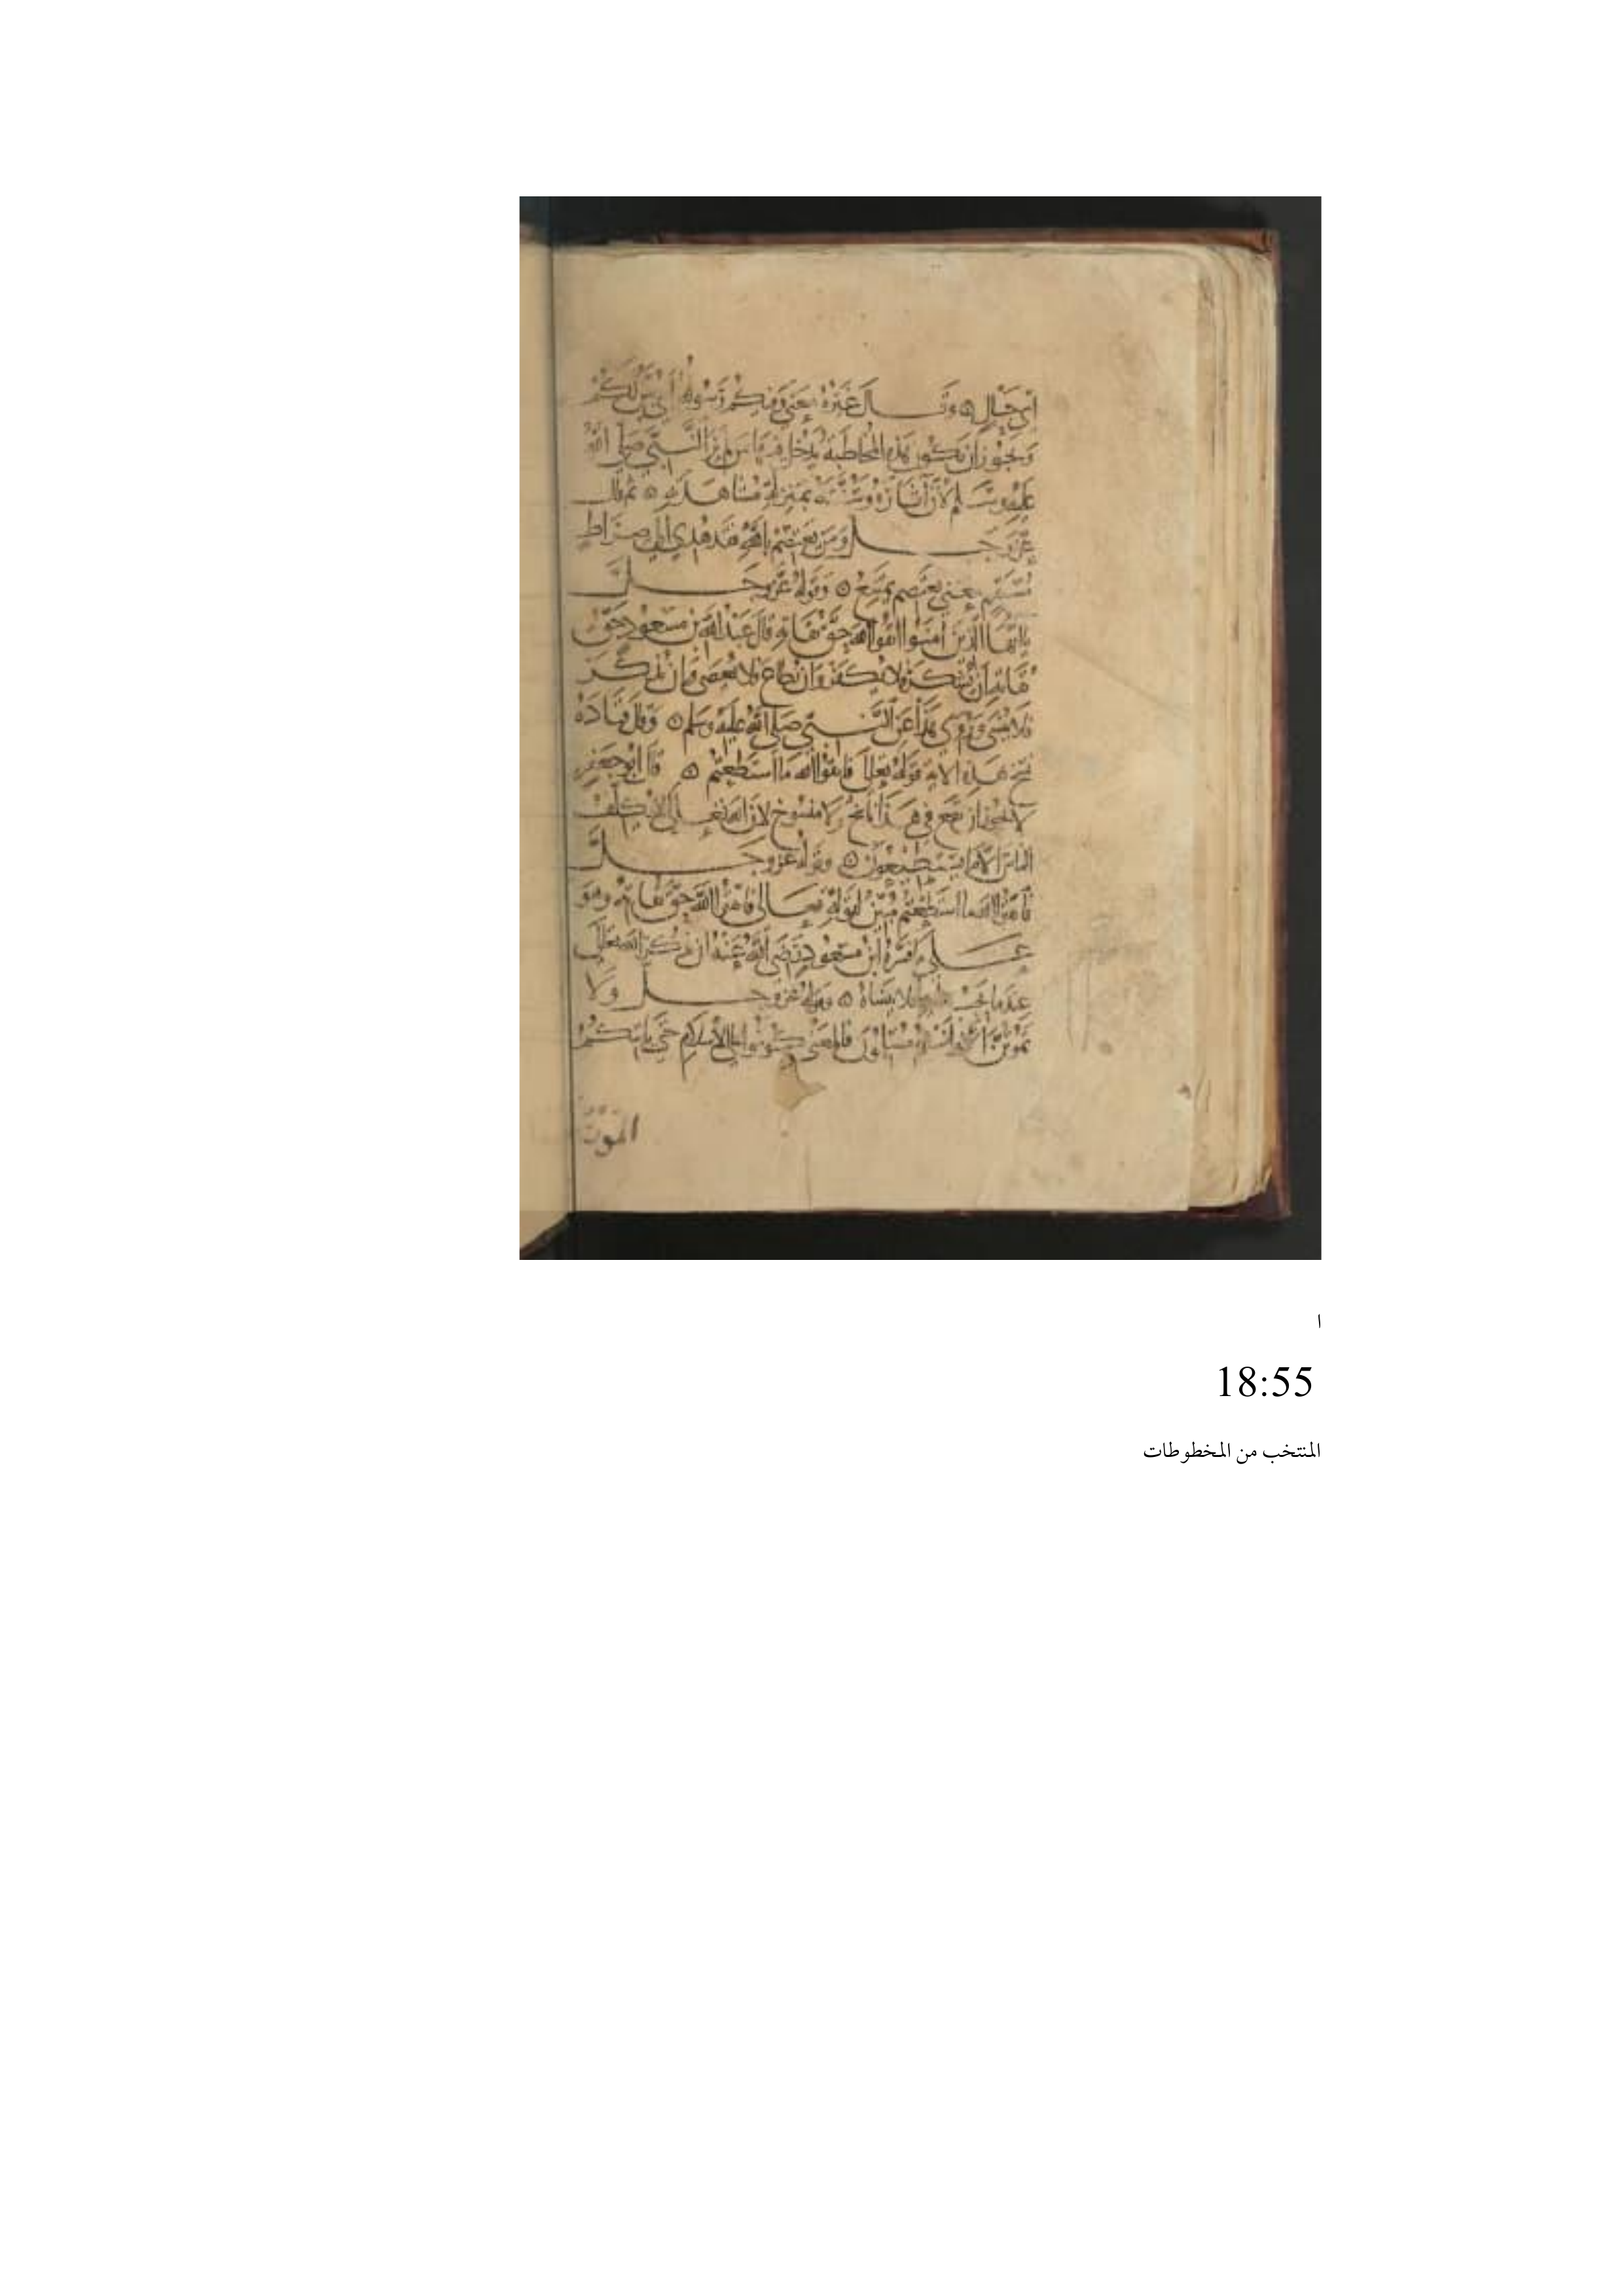 اي حال وقال غيره معنى وفيكم رسوله اي يبين لكم
ويجوز ان تكون هذه المخاطبة يدخل فيها من لم ير النبي صلى الله
عليه وسلم لان آثاره وسنته بمنزلة مشاهدته ثم قال
عز وجل ومن يعتصم بالله فقد هدي الى صراط
مستقيم معنى يعتصم يمتنع وقوله عز وجل
يا ايها الذين آمنوا اتقوا الله حق تقاته قال عبد الله بن مسعود حق
تقاته ان يشكر فلا يكفر وان يطاع فلا يعصى وان يذكر
فلا ينسى وروي هذا عن النبي صلى الله عليه وسلم وقال قتادة
نسخ هذه الاية قوله تعالى فاتقوا الله ما استطعتم قال ابو جعفر
لا يجوز ان يقع في هذا ناسخ ولا منسوخ لان الله تعالى لا يكلف
الناس الا ما يستطيعون وقوله عز وجل
فاتقوا الله ما استطعتم مبين لقوله تعالى فاتقوا الله حق تقاته وهو
على ما فسره ابن مسعود رضي الله عنه ان يذكر الله تعالى
عند ما يجب عليه فلا ينساه وقوله عز وجل ولا
تموتن الا وانتم مسلمون فالمعنى كونوا على الاسلام حتى ياتيكم
الموت
ا
18:55
المنتخب من المخطوطات